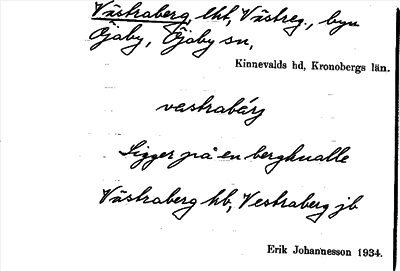 Västraberg, lht, Västreg., byn
Öjaby, Öjaby sn,
Kinnevalds hd, Kronobergs län.
vastrabárg
Ligger på en bergknalle
Västraberg hb, Vestraberg jb
Erik Johannesson 1934.